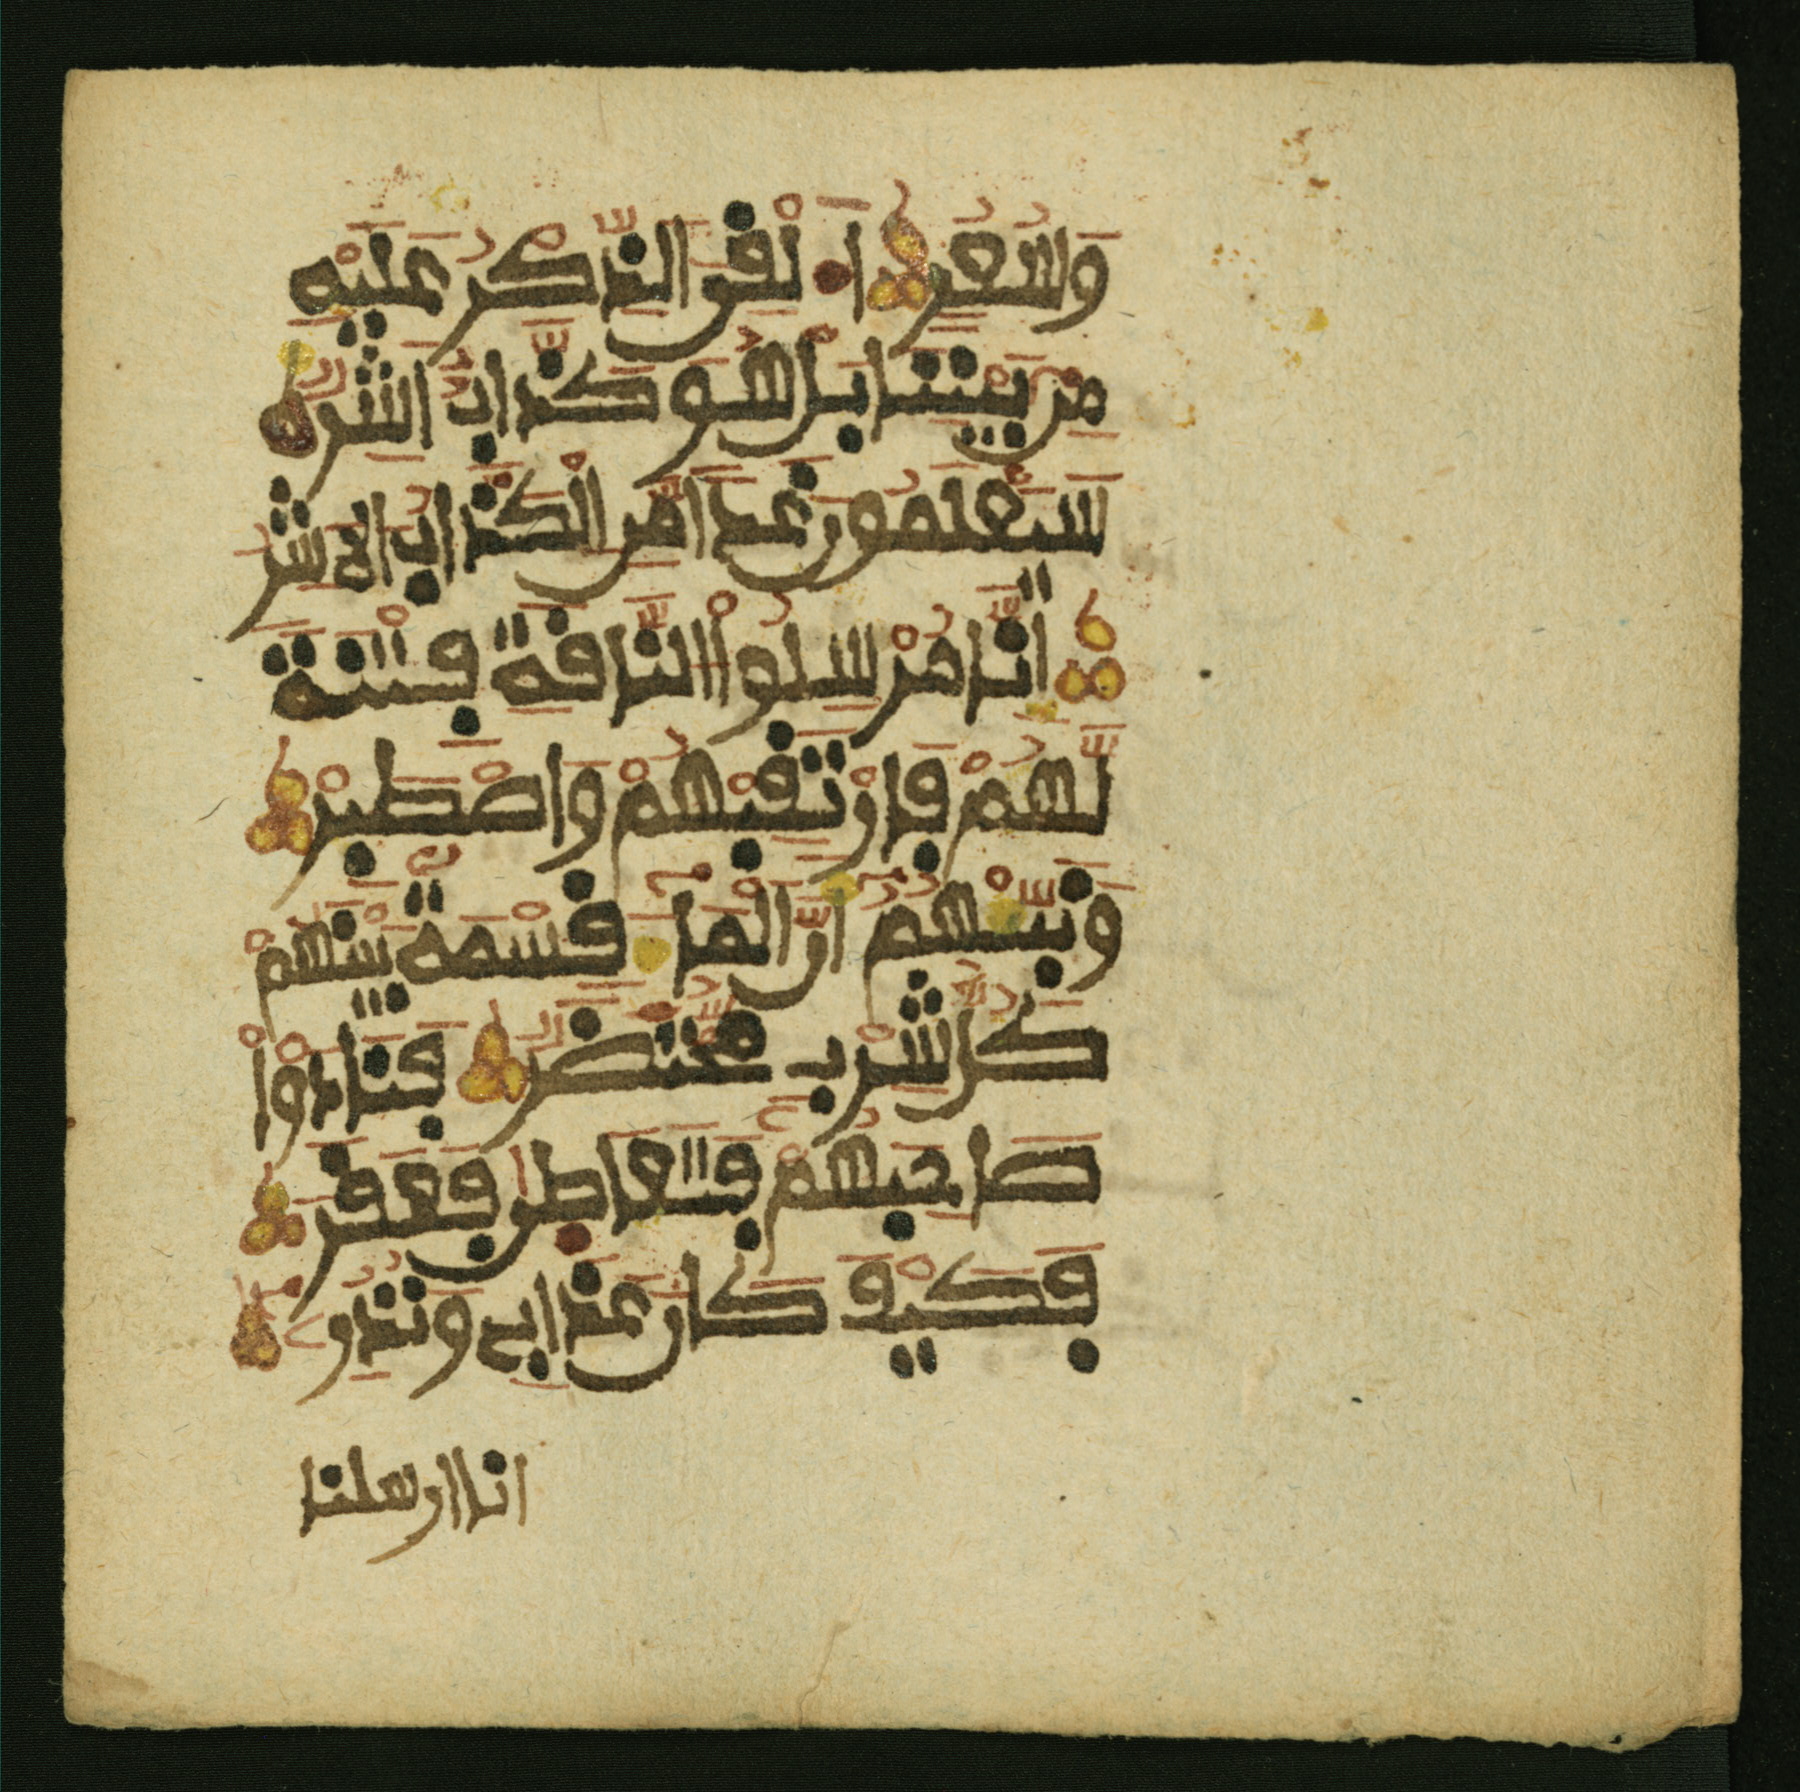 وَسُعُرٍ اَ۟لْقِيَ الذِّكْرُ عَلَيْهِ
مِنْ بَيْنِنَا بَلْ هُوَ كَذَّابٌ اَشِرٌ
سَيَعْلَمُونَ غَدًا مَّنِ الْكَذَّابُ الاَشِرُ
اِنَّا مُرْسِلُوا النَّاقَةِ فِتْنَةً
لَّهُمْ فَارْتَقِبْهُمْ وَاصْطَبِرْ
وَنَبِّئْهُمُ أَنَّ الْمَا قِسْمَةٌ بَيْنَهُمْ
كُلُّ شِرْبٍ مُّحْتَضَرٌ فَنَادَوْا
صَاحِبَهُمْ فَتَعَاطَى فَعَقَرَ
فَكَيْفَ كَانَ عَذَابِي وَنُذُرِ
انا ارسلنا